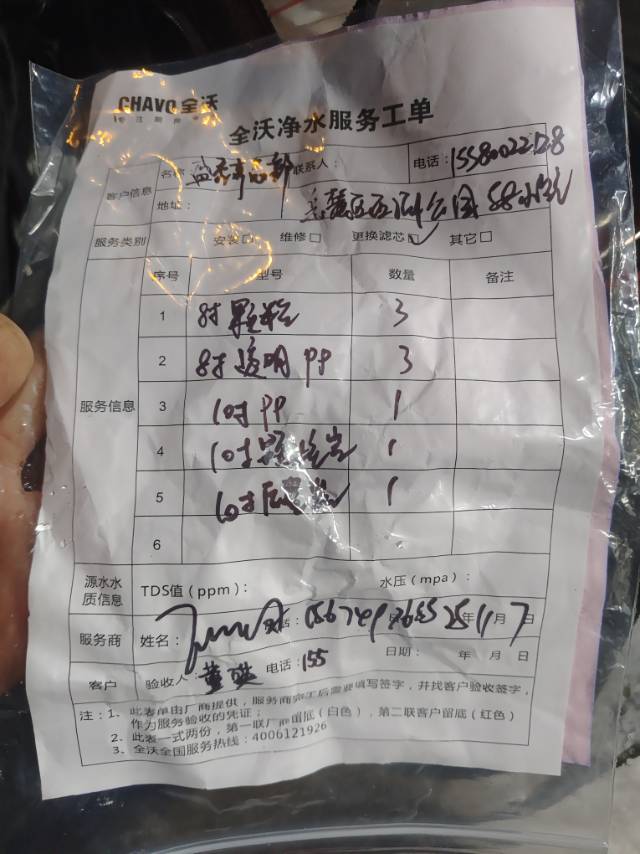 CHAVO 全沃
全沃净水服务工单
客户信息 名称 联系人： 电话：15580022128
地址： 58小区
服务类别 安装□ 维修□ 更换滤芯☑ 其它□
服务信息 序号 型号 数量 备注
1 8寸颗粒 3
2 8寸透明PP 3
3 10寸PP 1
4 10寸颗粒炭 1
5 10寸 1
6
源水水质信息 TDS值（ppm）： 水压（mpa）：
服务商 姓名： 25年11月7日
客户 验收人： 电话：155 日期： 年 月 日
注：1、此表单由厂商提供，服务商完工后需要填写签字，并找客户验收签字，
作为服务验收的凭证；
2、此表一式两份，第一联厂商留底（白色），第二联客户留底（红色）
3、全沃全国服务热线：4006121926